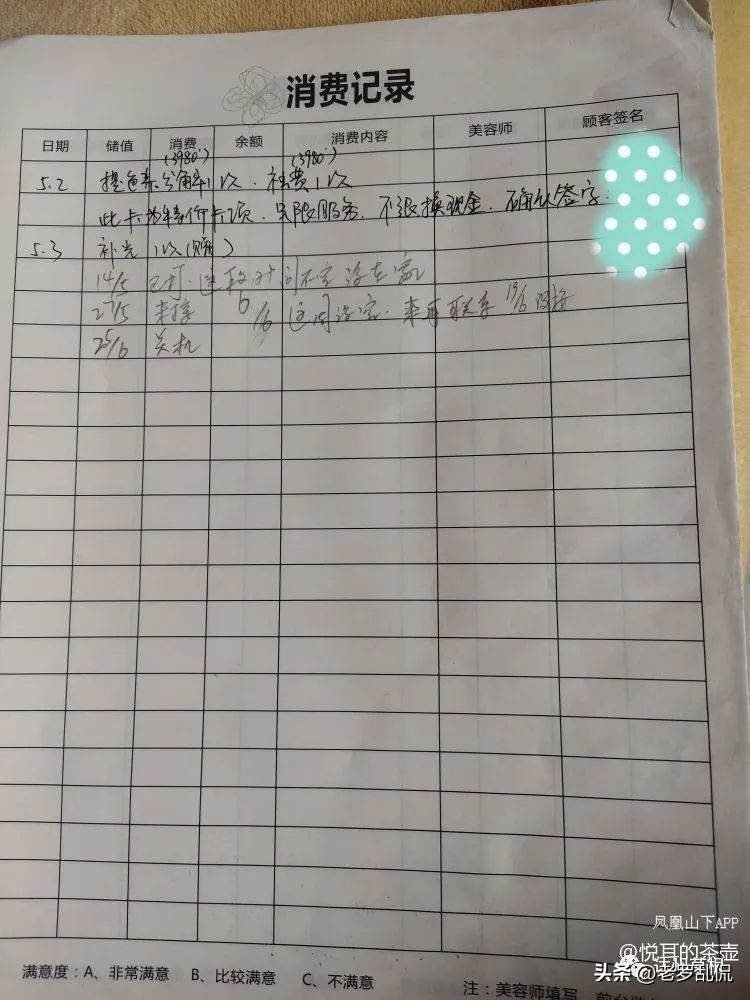 消费记录
日期 储值 消费 余额 消费内容 美容师 顾客签名
(3980.) (3980.)
5.2 提色 1次. 1次
此卡为特价卡项. 只限服务. 不退换现金. 确认签字.
5.3 补光 1次
14/5 已打. 这段时间不定没在家
27/5 未接 6/6 这周没空. 来再联系 19/6 没接
25/6 关机
满意度：A、非常满意 B、比较满意 C、不满意
注：美容师填写
凤凰山下APP
@悦耳的茶壶
头条@老罗乱侃